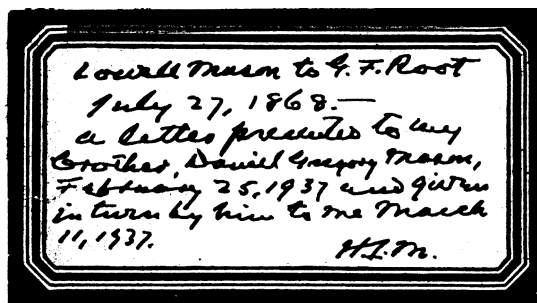 Lowell Mason to G. F. Root
July 27, 1868.—
a letter presented to my
brother, Daniel Gregory Mason,
February 25, 1937 and given
in turn by him to me March
11, 1937.
H.L.M.